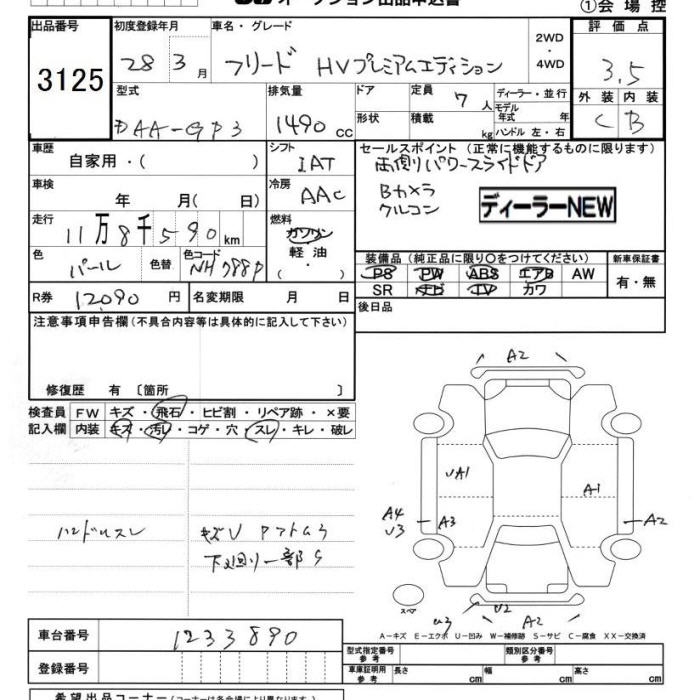 オークション出品申込書
①会場控
出品番号
3125
初度登録年月
28 3 月
車名・グレード
フリード HVプレミアムエディション
2WD
・
4WD
評価点
3.5
外装 内装
C B
型式
DAA-GP3
排気量
1490 cc
ドア
形状
定員 7 人
積載 kg
ディーラー・並行
モデル年式 年
ハンドル 左・右
車歴
自家用・( )
シフト
IAT
セールスポイント (正常に機能するものに限ります)
両側パワースライドドア
Bカメラ
クルコン
ディーラーNEW
車検
年 月( 日)
冷房
AAC
走行
11万8千590km
燃料
ガソリン
軽油
・
( )
色
パール
色替
色コード
NH788P
装備品 (純正品に限り〇をつけてください)
PS PW ABS エアB AW
SR ナビ TV カワ
新車保証書
有・無
R券 12090 円
名変期限 月 日
後日品
注意事項申告欄 (不具合内容等は具体的に記入して下さい)
修復歴 有 〔箇所 〕
検査員
記入欄
FW キズ・飛石・ヒビ割・リペア跡・×要
内装 キズ・汚レ・コゲ・穴・スレ・キレ・破レ
ハンドルスレ
キズU アマトムラ
下廻り一部S
A2
UA1
A1
A4
U3
A3
A2
スペア
U3
U2
A2
A-キズ E-エクボ U-凹み W-補修跡 S-サビ C-腐食 XX-交換済
車台番号
1233890
登録番号
型式指定番号
参考
類別区分番号
参考
車庫証明用
参考
長さ cm
幅 cm
高さ cm
希望出品コーナー (コーナーは各会場により異なります)